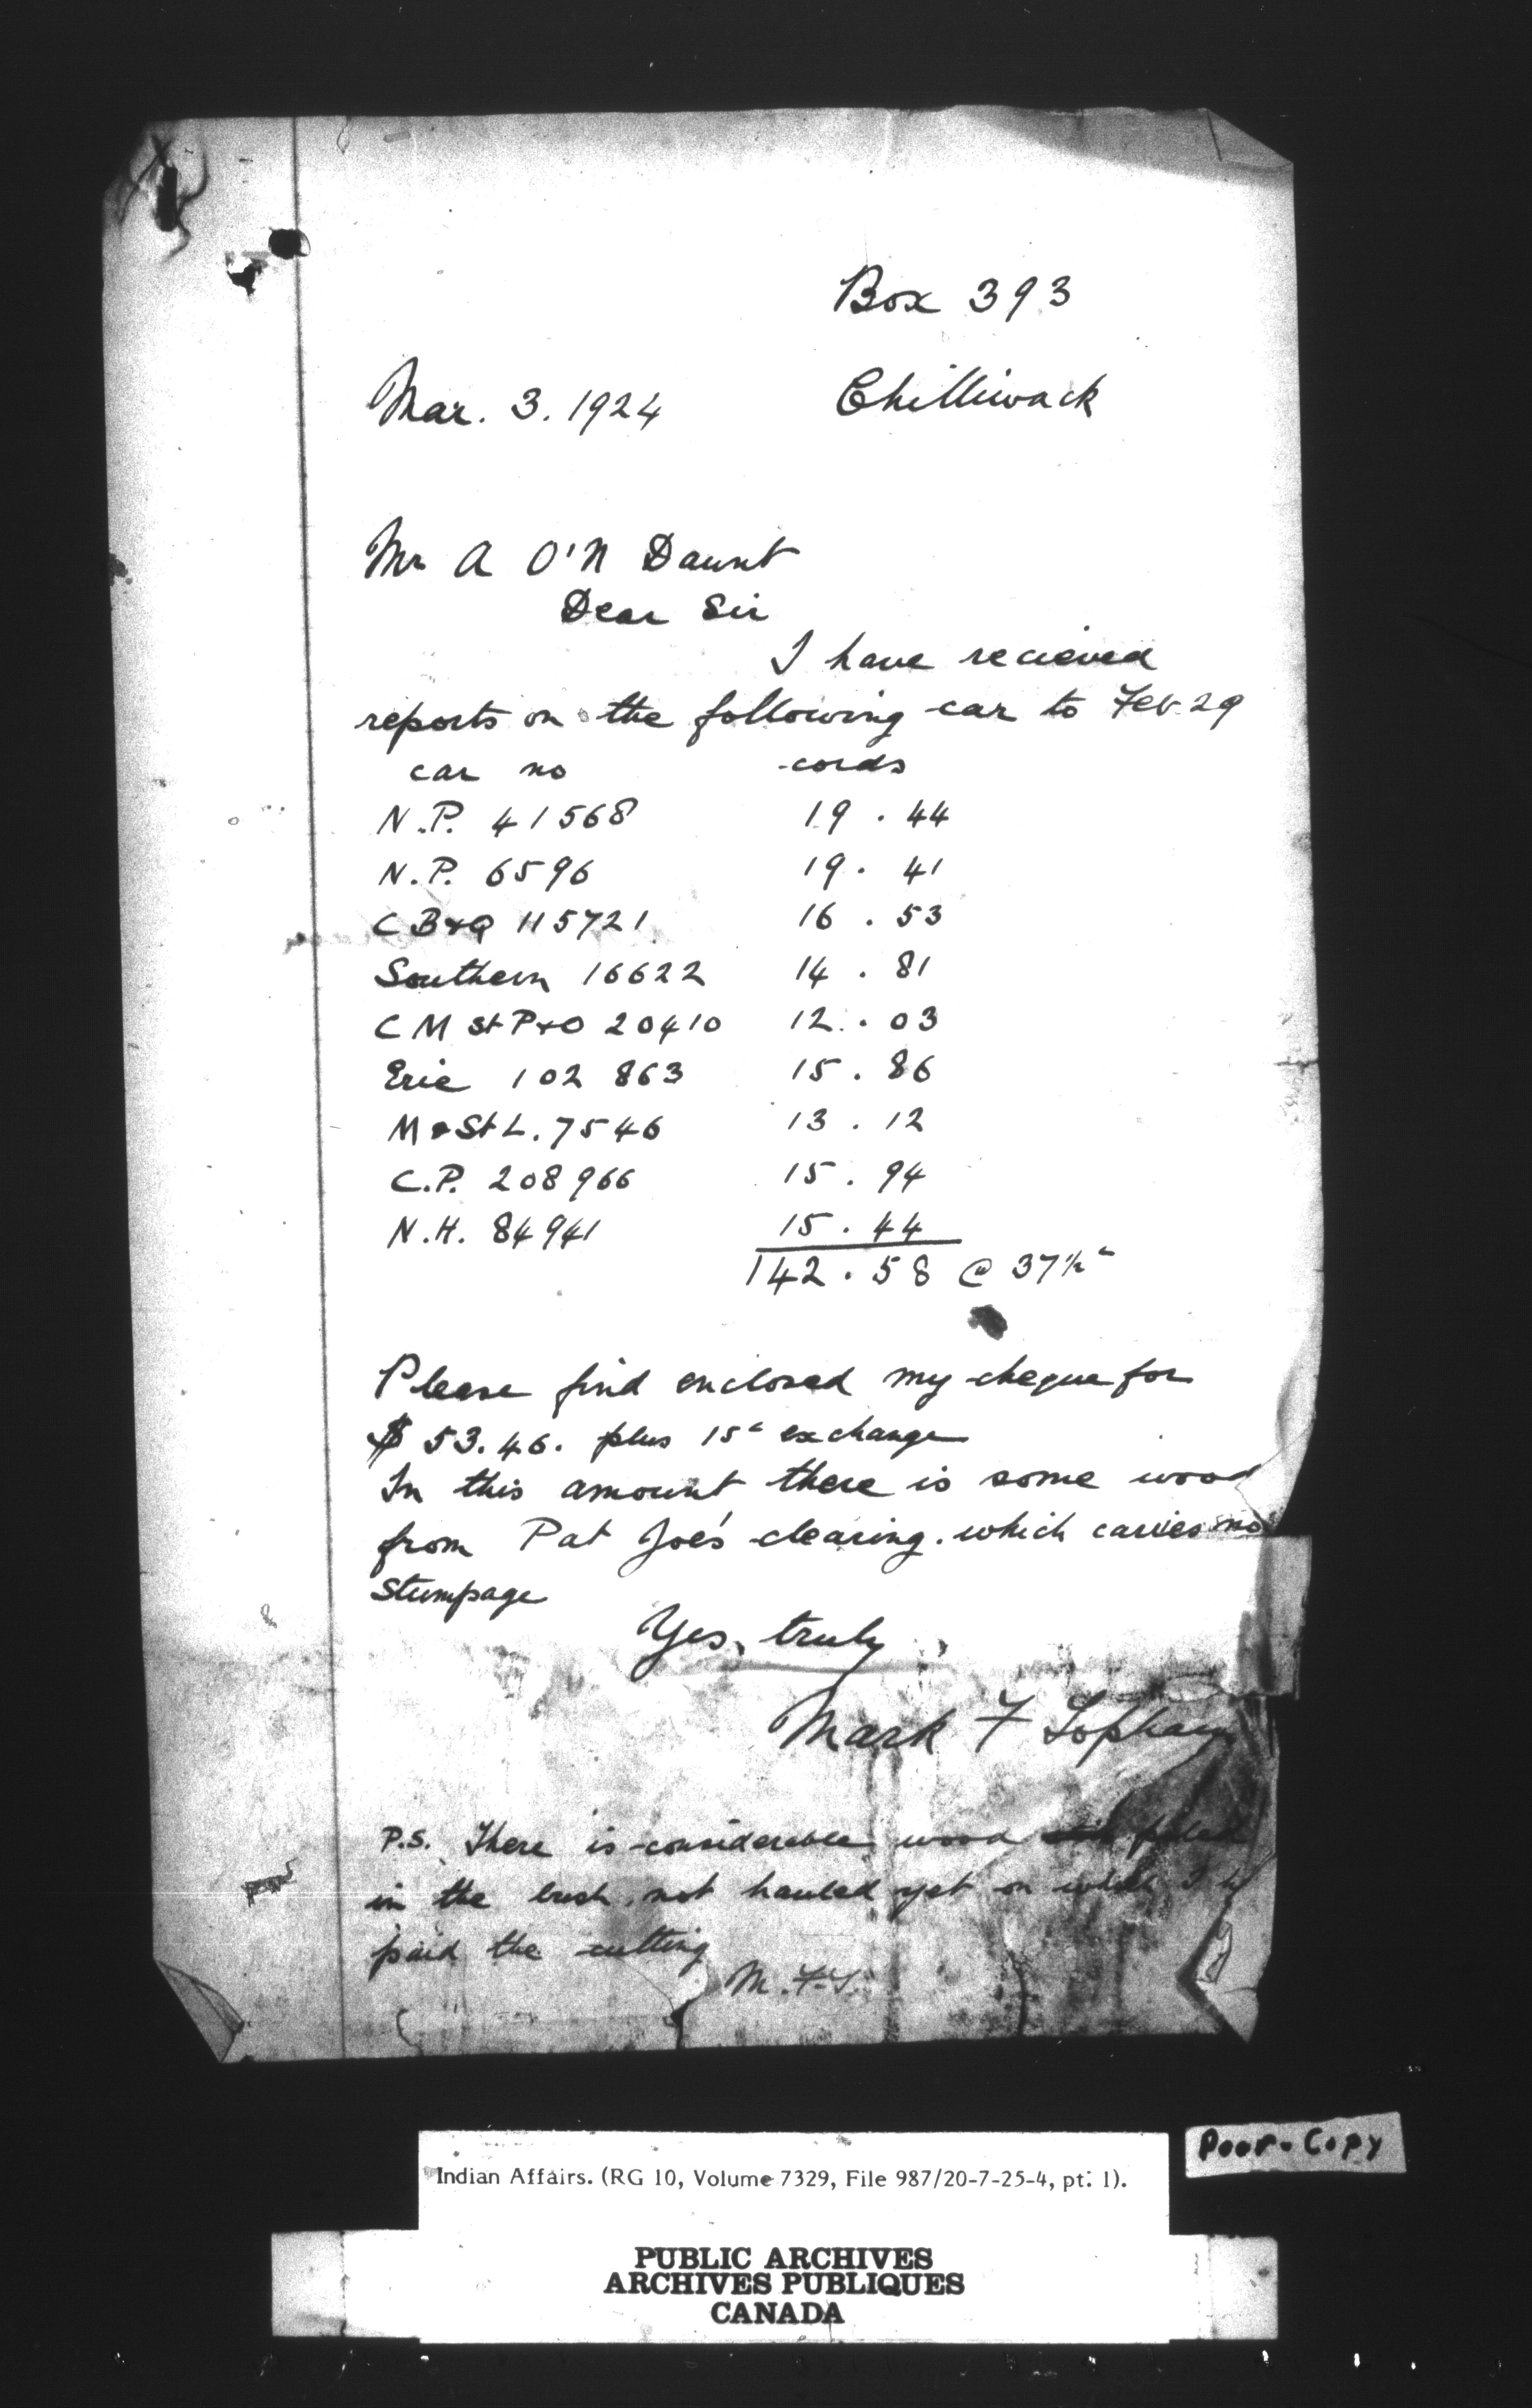 Box 393
Mar. 3. 1924
Chilliwack
Mr A O'N Daunt
Dear Sir
I have recieved
reports on the following car to Feb. 29
car no cords
N.P. 41568 19 . 44
N.P. 6596 19 . 41
C B & Q 115721 16 . 53
Southern 16622 14 . 81
C M St P & O 20410 12 . 03
Erie 102 863 15 . 86
M & St L. 7546 13 . 12
C.P. 208966 15 . 94
N.H. 84941 15 . 44
142 . 58 @ 37½ c
Please find enclosed my cheque for
$ 53.46. plus 15c exchange
In this amount there is some wood
from Pat Joe's clearing. which carries no
stumpage
Yrs. truly
Mark F Topham
P.S. There is considerable wood piled
in the bush, not hauled yet on which I
paid the cutting
M.F.T.
Poor-Copy
Indian Affairs. (RG 10, Volume 7329, File 987/20-7-25-4, pt. 1).
PUBLIC ARCHIVES
ARCHIVES PUBLIQUES
CANADA